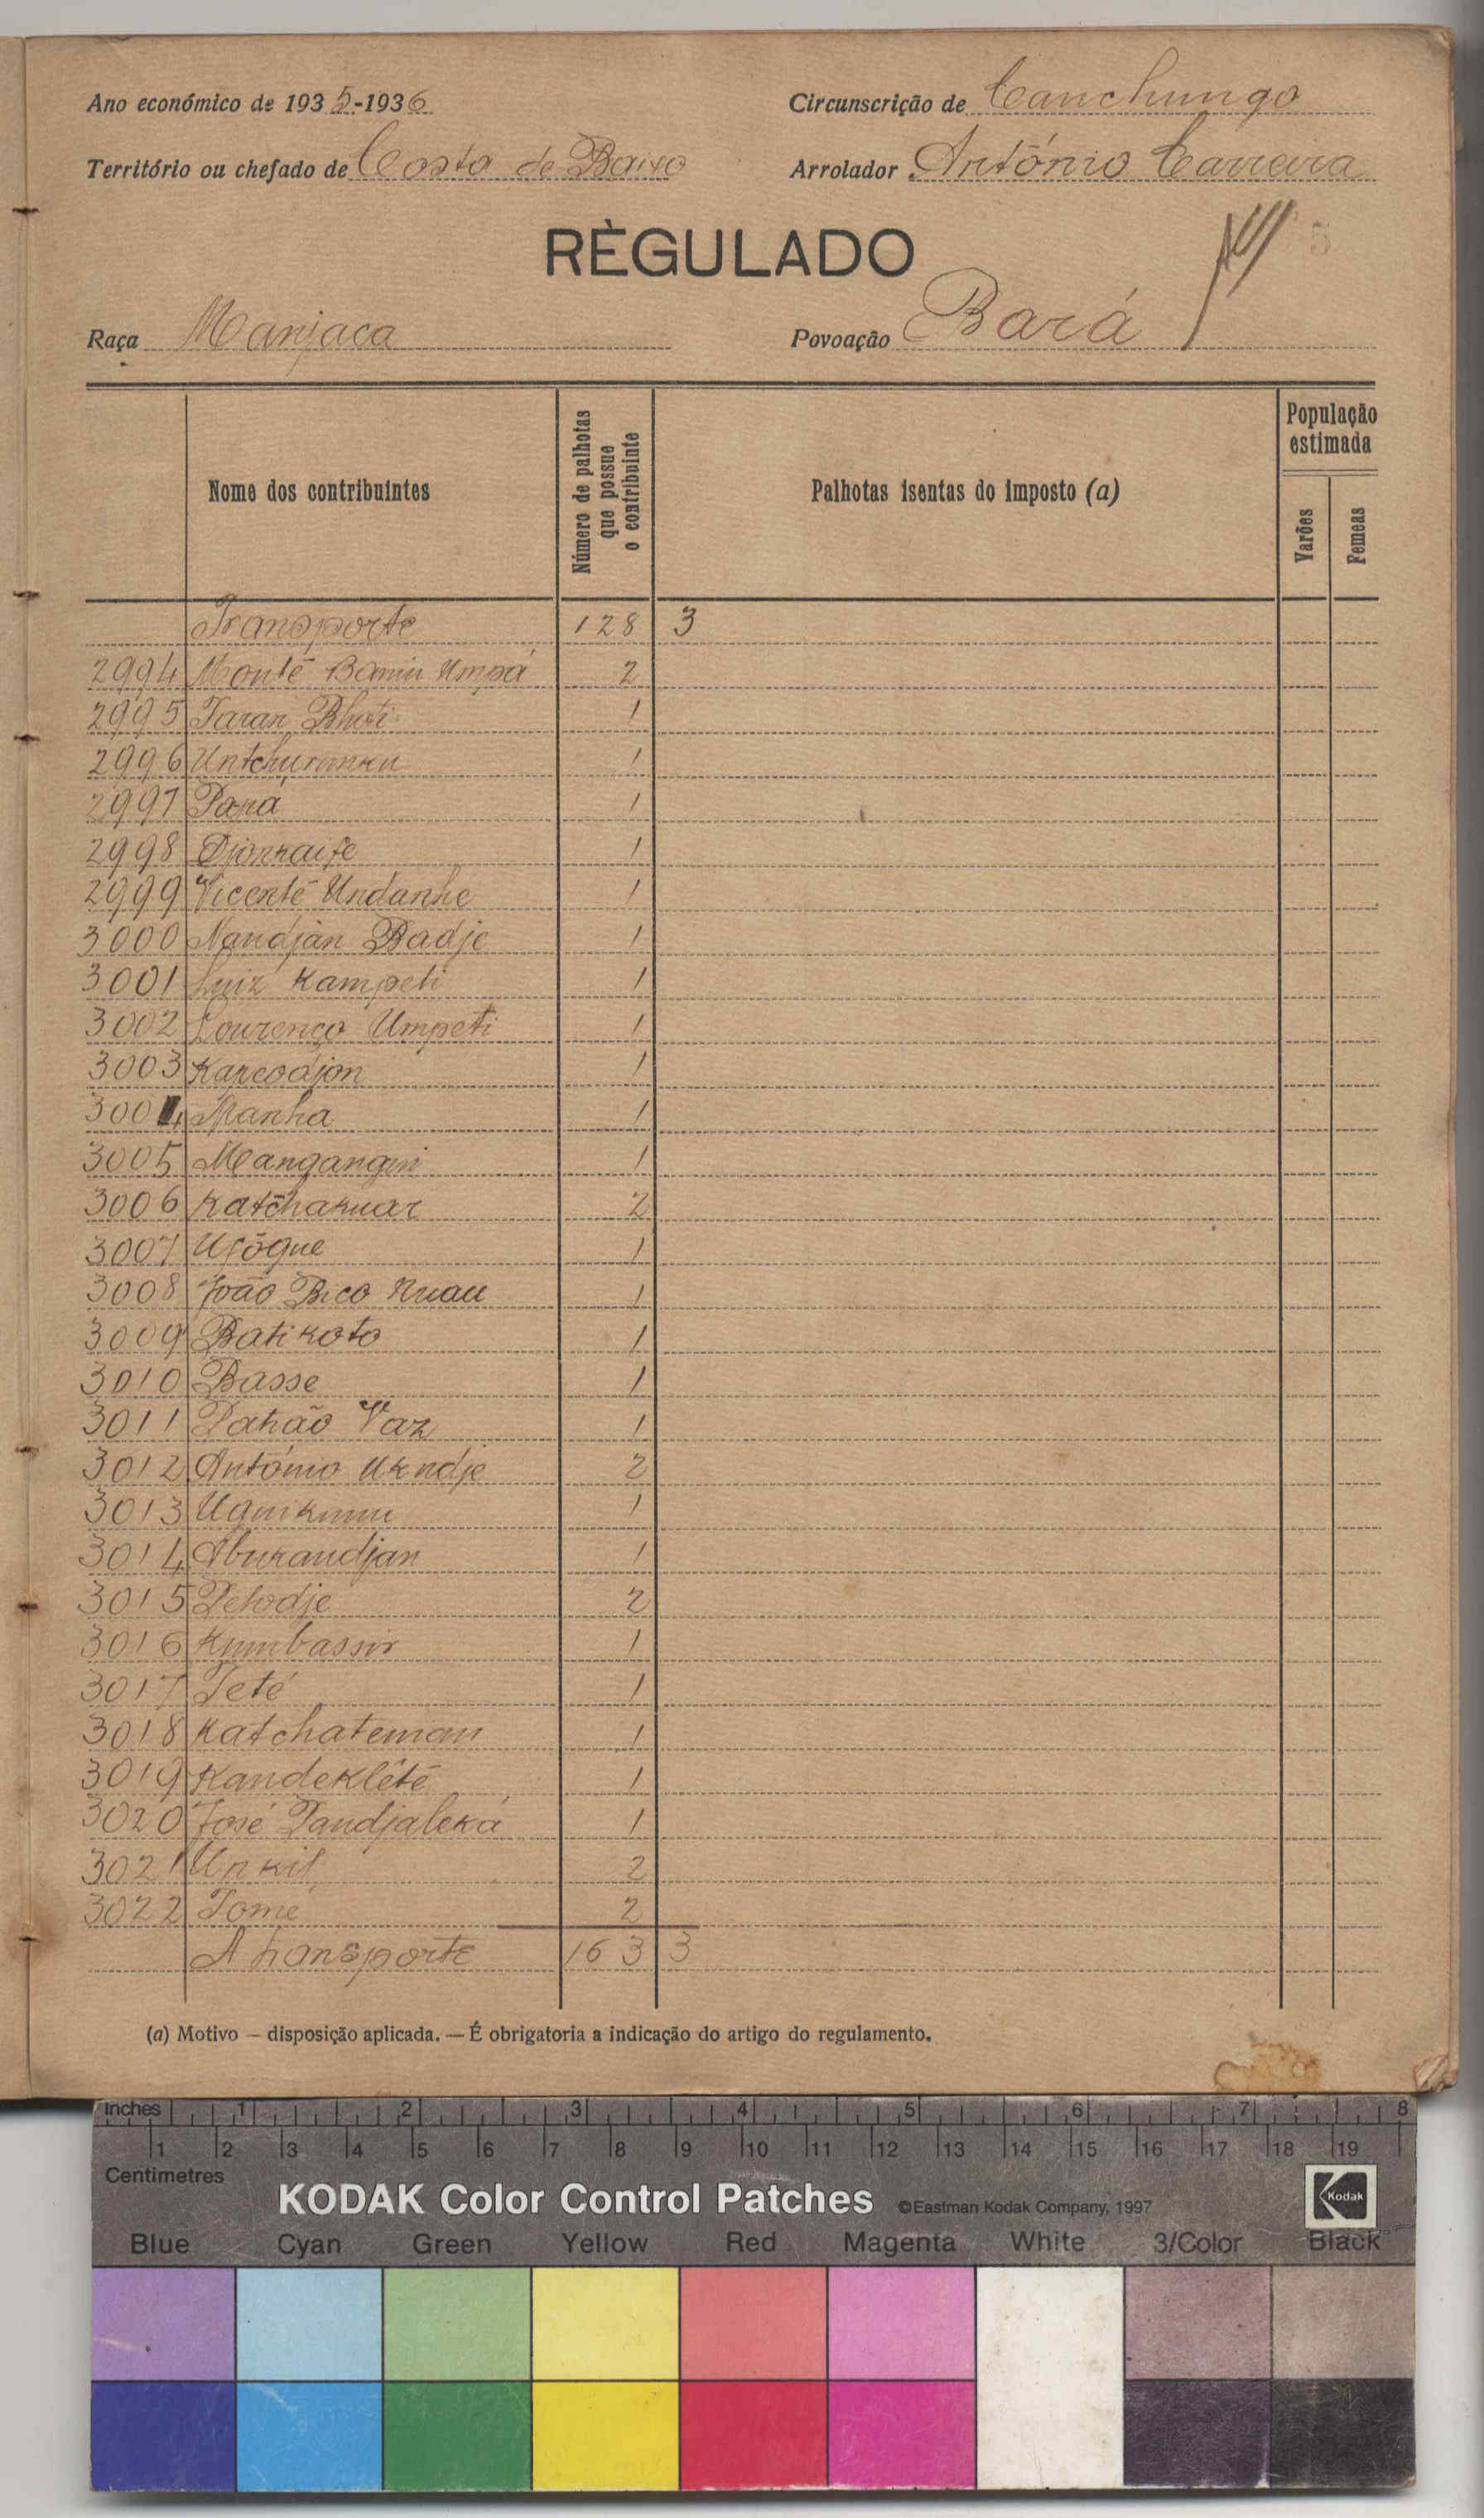 Ano económico de 1935-1936
Circunscrição de Canchungo
Território ou chefado de Costa de Baixo
Arrolador António Carreira
RÈGULADO
5
Raça Manjaca
Povoação Bará
Nome dos contribuintes
Número de palhotas que possue o contribuinte
Palhotas isentas do imposto (a)
População estimada
Varões
Femeas
Transporte 128 3
2994 Monté Umpá 2
2995 Taran 1
2996 1
2997 Pará 1
2998 1
2999 Vicente Undanhe 1
3000 Nandjan Badje 1
3001 Luiz Kampeti 1
3002 Lourenço Umpeti 1
3003 1
3004 Manha 1
3005 1
3006 Katchakuar 2
3007 1
3008 João Bico 1
3009 Batikoto 1
3010 Basse 1
3011 Vaz 1
3012 António 2
3013 1
3014 1
3015 2
3016 Kumbassir 1
3017 Teté 1
3018 Katchateman 1
3019 Kandekleté 1
3020 José 1
3021 Unkil 2
3022 Tomé 2
A transporte 163 3
(a) Motivo — disposição aplicada. — É obrigatoria a indicação do artigo do regulamento.
Inches 1 2 3 4 5 6 7 8
1 2 3 4 5 6 7 8 9 10 11 12 13 14 15 16 17 18 19
Centimetres
KODAK Color Control Patches ©Eastman Kodak Company, 1997 Kodak
Blue Cyan Green Yellow Red Magenta White 3/Color Black